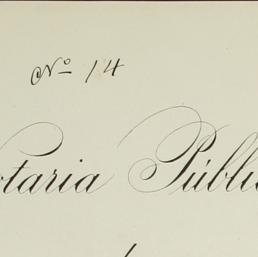 Nº 14
otaria Públi